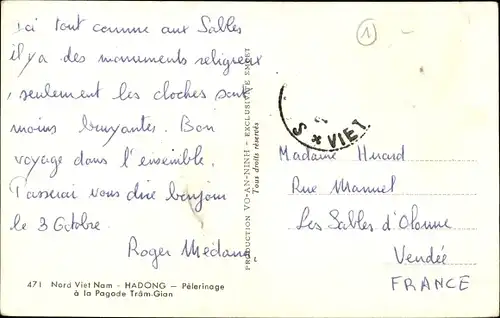 ici tout comme aux Sables
il y a des monuments religieux
, seulement les cloches sont
moins bruyantes. Bon
voyage dans l'ensemble.
Passerai vous dire bonjour
le 3 Octobre.
Roger Médam
471 Nord Viet Nam - HADONG - Pélerinage
à la Pagode Trâm-Gian
PRODUCTION VO-AN-NINH - EXCLUSIVITÉ EMCET
Tous droits réservés
1
S * VIE
Madame Huard
Rue Manuel
Les Sables d'Olonne
Vendée
FRANCE